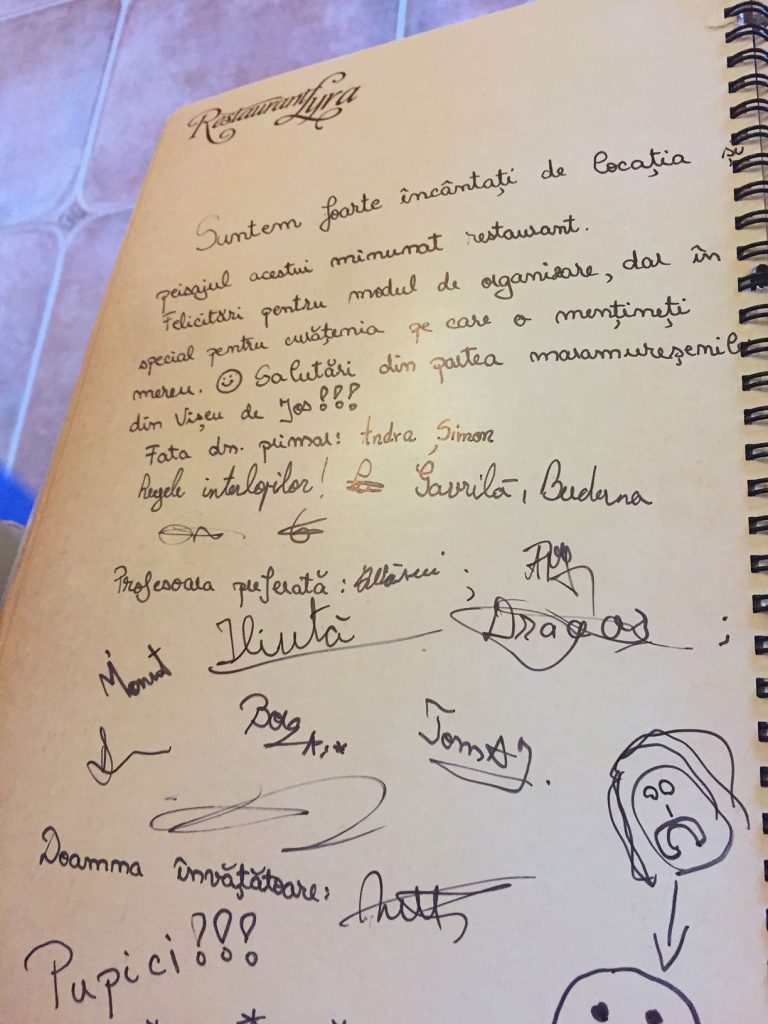 Restaurant Lyra
Suntem foarte încântați de locația și
peisajul acestui minunat restaurant.
Felicitări pentru modul de organizare, dar în
special pentru curățenia pe care o mențineți
mereu. Salutări din partea maramureșenilor
din Vișeu de Jos!!!
Fata dn. primar: Andra Simon
Regele interlopilor! Gavrilă, Buderna
Profesoara preferată: ;
Iliuță Dragos ;
Ionuț
Bog
Toma
Doamna învățătoare:
Pupici!!!